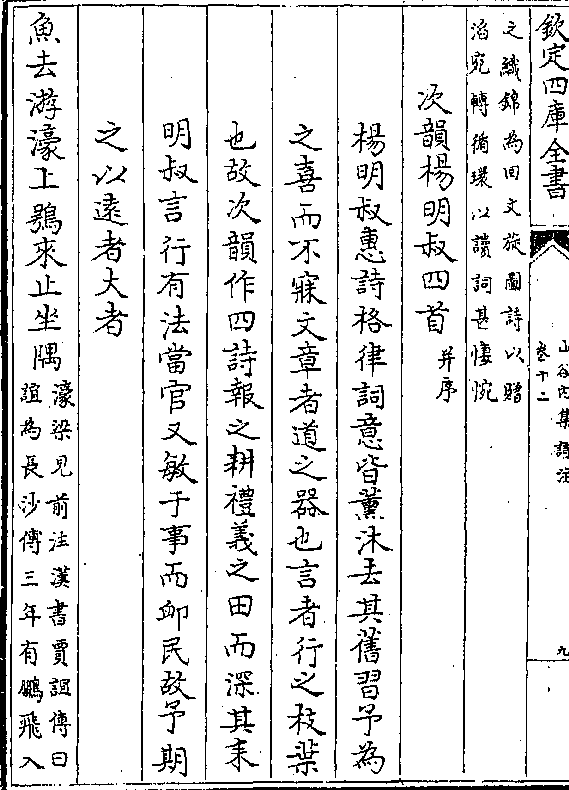 欽定四庫全書
山谷內集詩注
卷十二
九
之織錦為回文旋圖詩以贈
滔宛轉循環以讀詞甚悽惋
次韻楊明叔四首并序
楊明叔惠詩格律詞意皆薰沐去其舊習予為
之喜而不寐文章者道之器也言者行之枝葉
也故次韻作四詩報之耕禮義之田而深其耒
明叔言行有法當官又敏于事而卹民故予期
之以遠者大者
魚去游濠上鴞來止坐隅
濠梁見前注漢書賈誼傳曰
誼為長沙傅三年有鵩飛入